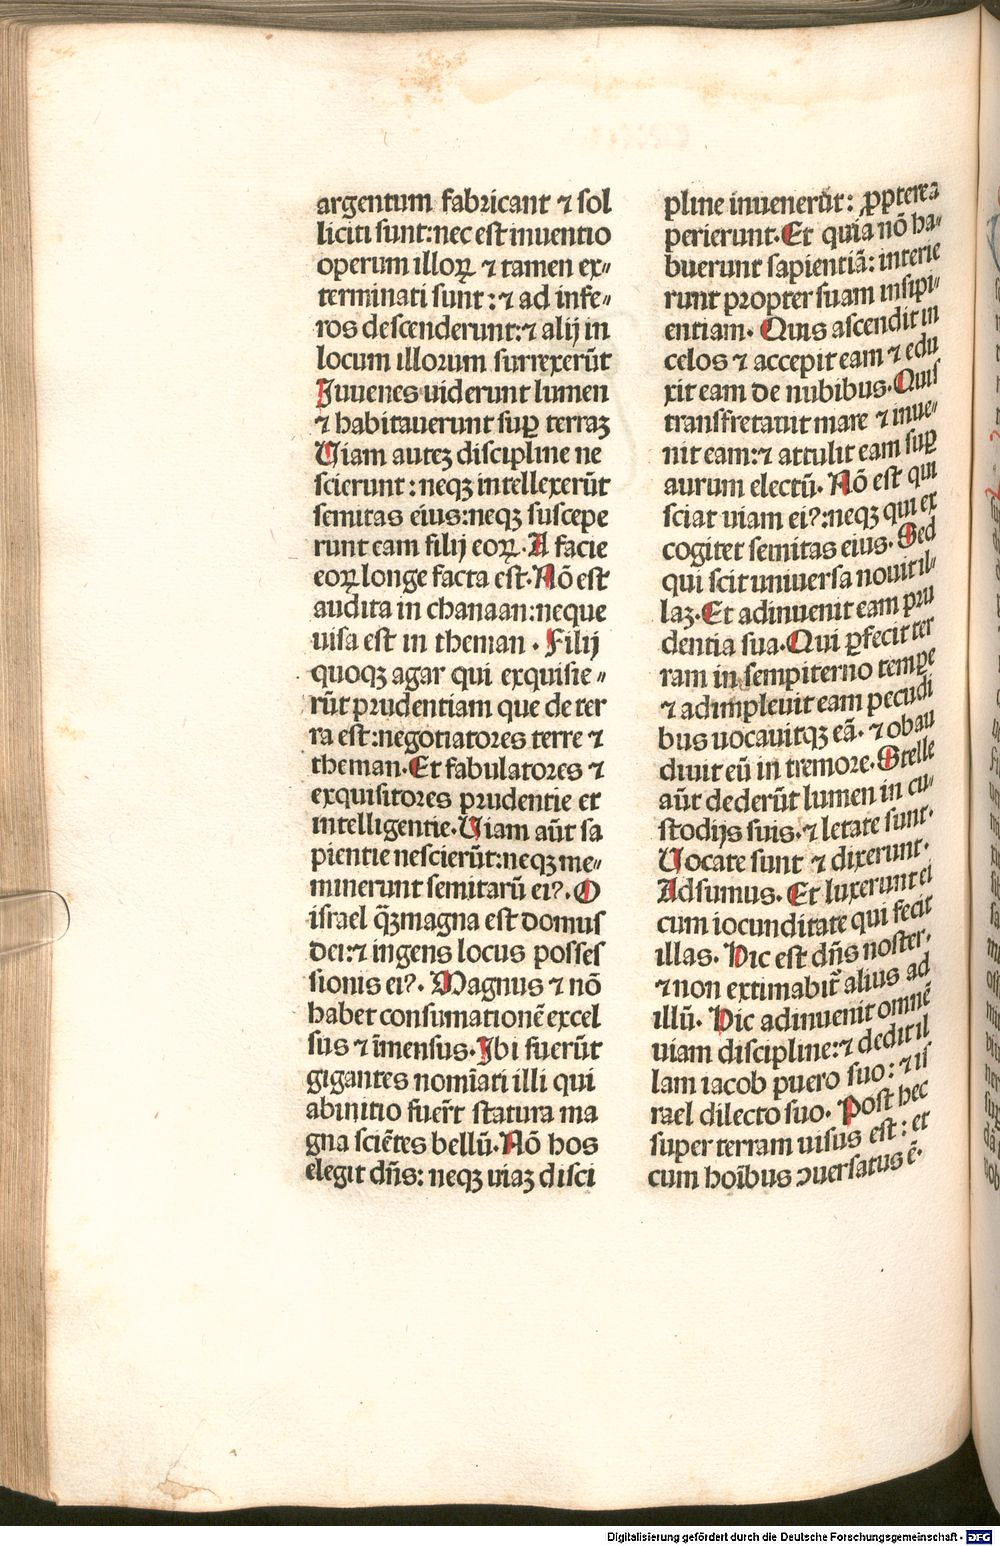 argentum fabricant ⁊ sol
liciti sunt:nec est inuentio
operum illoꝝ ⁊ tamen ex⸗
terminati sunt:⁊ ad infe⸗
ros descenderunt:⁊ alij in
locum illorum surrexerūt
Juuenes uiderunt lumen
⁊ habitauerunt suꝑ terraꝫ
Uiam auteꝫ discipline ne
scierunt:neqꝫ intellexerūt
semitas eius:neqꝫ suscepe
runt eam filij eoꝝ. A facie
eoꝝ longe facta est. Nō est
audita in chanaan:neque
uisa est in theman. Filij
quoqꝫ agar qui exquisie⸗
rūt prudentiam que de ter
ra est:negotiatores terre ⁊
theman. Et fabulatores ⁊
exquisitores prudentie et
intelligentie. Uiam aūt sa
pientie nescierūt:neqꝫ me⸗
minerunt semitarū eiꝰ. O
israel q̄ꝫ magna est domus
dei:⁊ ingens locus posses
sionis eiꝰ. Magnus ⁊ nō
habet consumationē excel
sus ⁊ īmensus. Ibi fuerūt
gigantes nomīati illi qui
abinitio fuerr̄t statura ma
gna sciētes bellū. Nō hos
elegit dn̄s: neqꝫ uiaꝫ disci
pline inuenerūt: ꝓpterea
perierunt. Et quia nō ha⸗
buerunt sapientiā: interie
runt propter suam insipi⸗
entiam. Quis ascendit in
celos ⁊ accepit eam ⁊ edu
xit eam de nubibus. Quis
transfretauit mare ⁊ inue⸗
nit eam:⁊ attulit eam suꝑ
aurum electū. Nō est qui
sciat uiam eiꝰ:neqꝫ qui ex
cogitet semitas eius. Sed
qui scit uniuersa nouit il⸗
laꝫ. Et adinuenit eam pru
dentia sua. Qui ꝑfecit ter
ram in sempiterno tempe
⁊ adimpleuit eam pecudi
bus uocauitqꝫ eā. ⁊ obau
diuit eū in tremore. Stelle
aūt dederūt lumen in cu⸗
stodijs suis. ⁊ letate sunt.
Uocate sunt ⁊ dixerunt.
Adsumus. Et luxerunt ei
cum iocunditate qui fecit
illas. Hic est dn̄s noster.
⁊ non extimabit̄ alius ad
illū. Hic adinuenit omnē
uiam discipline:⁊ dedit il
lam iacob puero suo: ⁊ is
rael dilecto suo. Post hec
super terram uisus est: et
cum hoībus ↄuersatus ē.
Digitalisierung gefördert durch die Deutsche Forschungsgemeinschaft - DFG